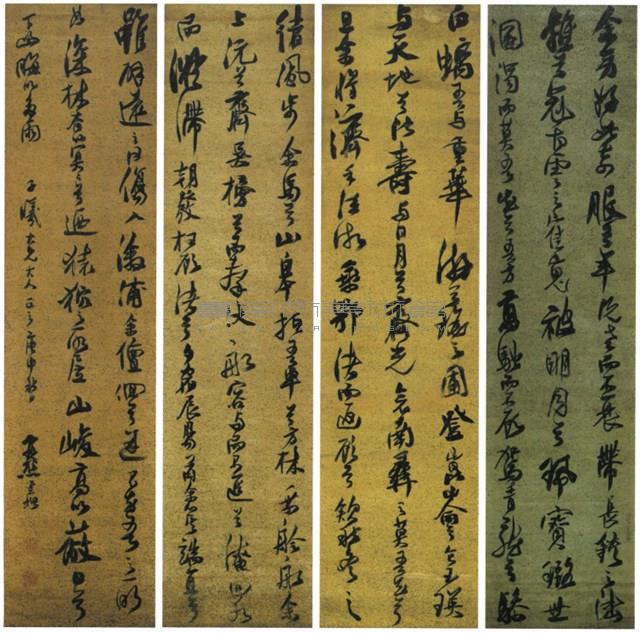 余幼好此奇服兮年既老而不衰帶長鋏之陸
離兮冠切雲之崔嵬被明月兮珮寶璐世
溷濁而莫余知兮吾方高馳而不顧駕青虬兮驂
白螭吾與重華游兮瑤之圃登崑崙兮食玉英
與天地兮比壽與日月兮齊光哀南夷之莫吾知兮
旦余將濟乎江湘乘鄂渚而返顧兮欸秋冬之
緒風步余馬兮山皋邸余車兮方林乘舲船余
上沅兮齊吳榜兮擊汰船容與而不進兮淹回水
而凝滯朝發枉渚兮夕宿辰陽苟余心端直兮
雖僻遠之何傷入漵浦余儃佪兮迷不知吾所
如深林杳冥冥兮迺猿狖之所居山峻高以蔽日兮
下幽晦以多雨 子曦大兄大人正之 庚申